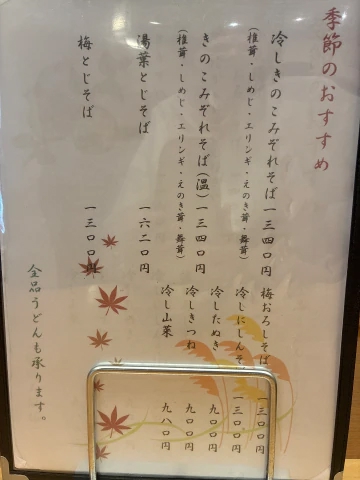 季節のおすすめ
冷しきのこみぞれそば 一三四〇円
(椎茸・しめじ・エリンギ・えのき茸・舞茸)
きのこみぞれそば(温) 一三四〇円
(椎茸・しめじ・エリンギ・えのき茸・舞茸)
湯葉とじそば 一六二〇円
梅とじそば 一三〇〇円
梅おろしそば 一三〇〇円
冷しにしんそ 一三〇〇円
冷したぬき 九〇〇円
冷しきつね 九〇〇円
冷し山菜 九八〇円
全品うどんも承ります。